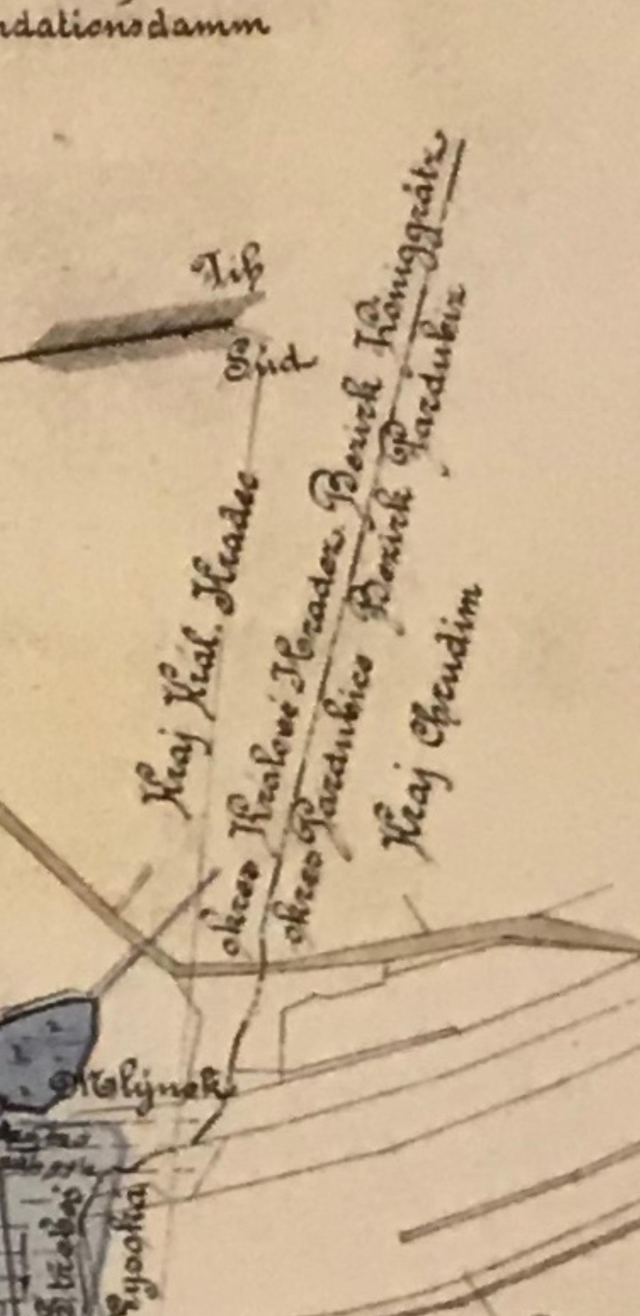 ndationsdamm
Jih
Süd
Kraj Král. Hradec
okres Králové Hradec. Bezirk Königgrätz
okres Pardubice Bezirk Pardubiz
Kraj Chrudim
Mlýnek
Vysoká